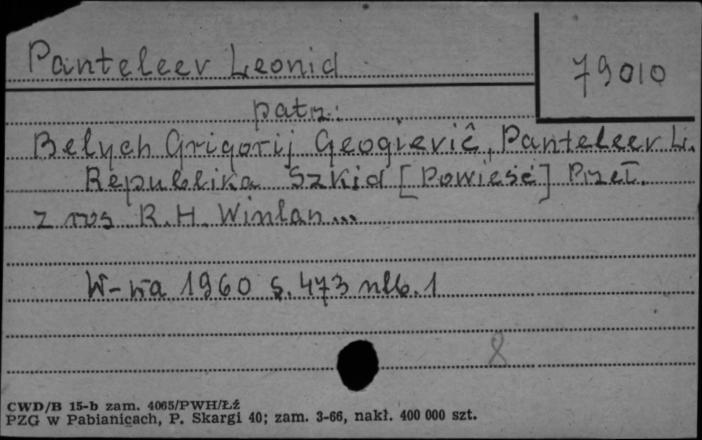 Panteleev Leonid
79010
patrz:
Belych Grigorij Geogievič, Panteleev L.
Republika Szkid [Powieść] Przeł.
z ros R.H. Winlan...
W-wa 1960 s. 473 nlb. 1
8
CWD/B 15-b zam. 4065/PWH/Łź
PZG w Pabianicach, P. Skargi 40; zam. 3-66, nakł. 400 000 szt.